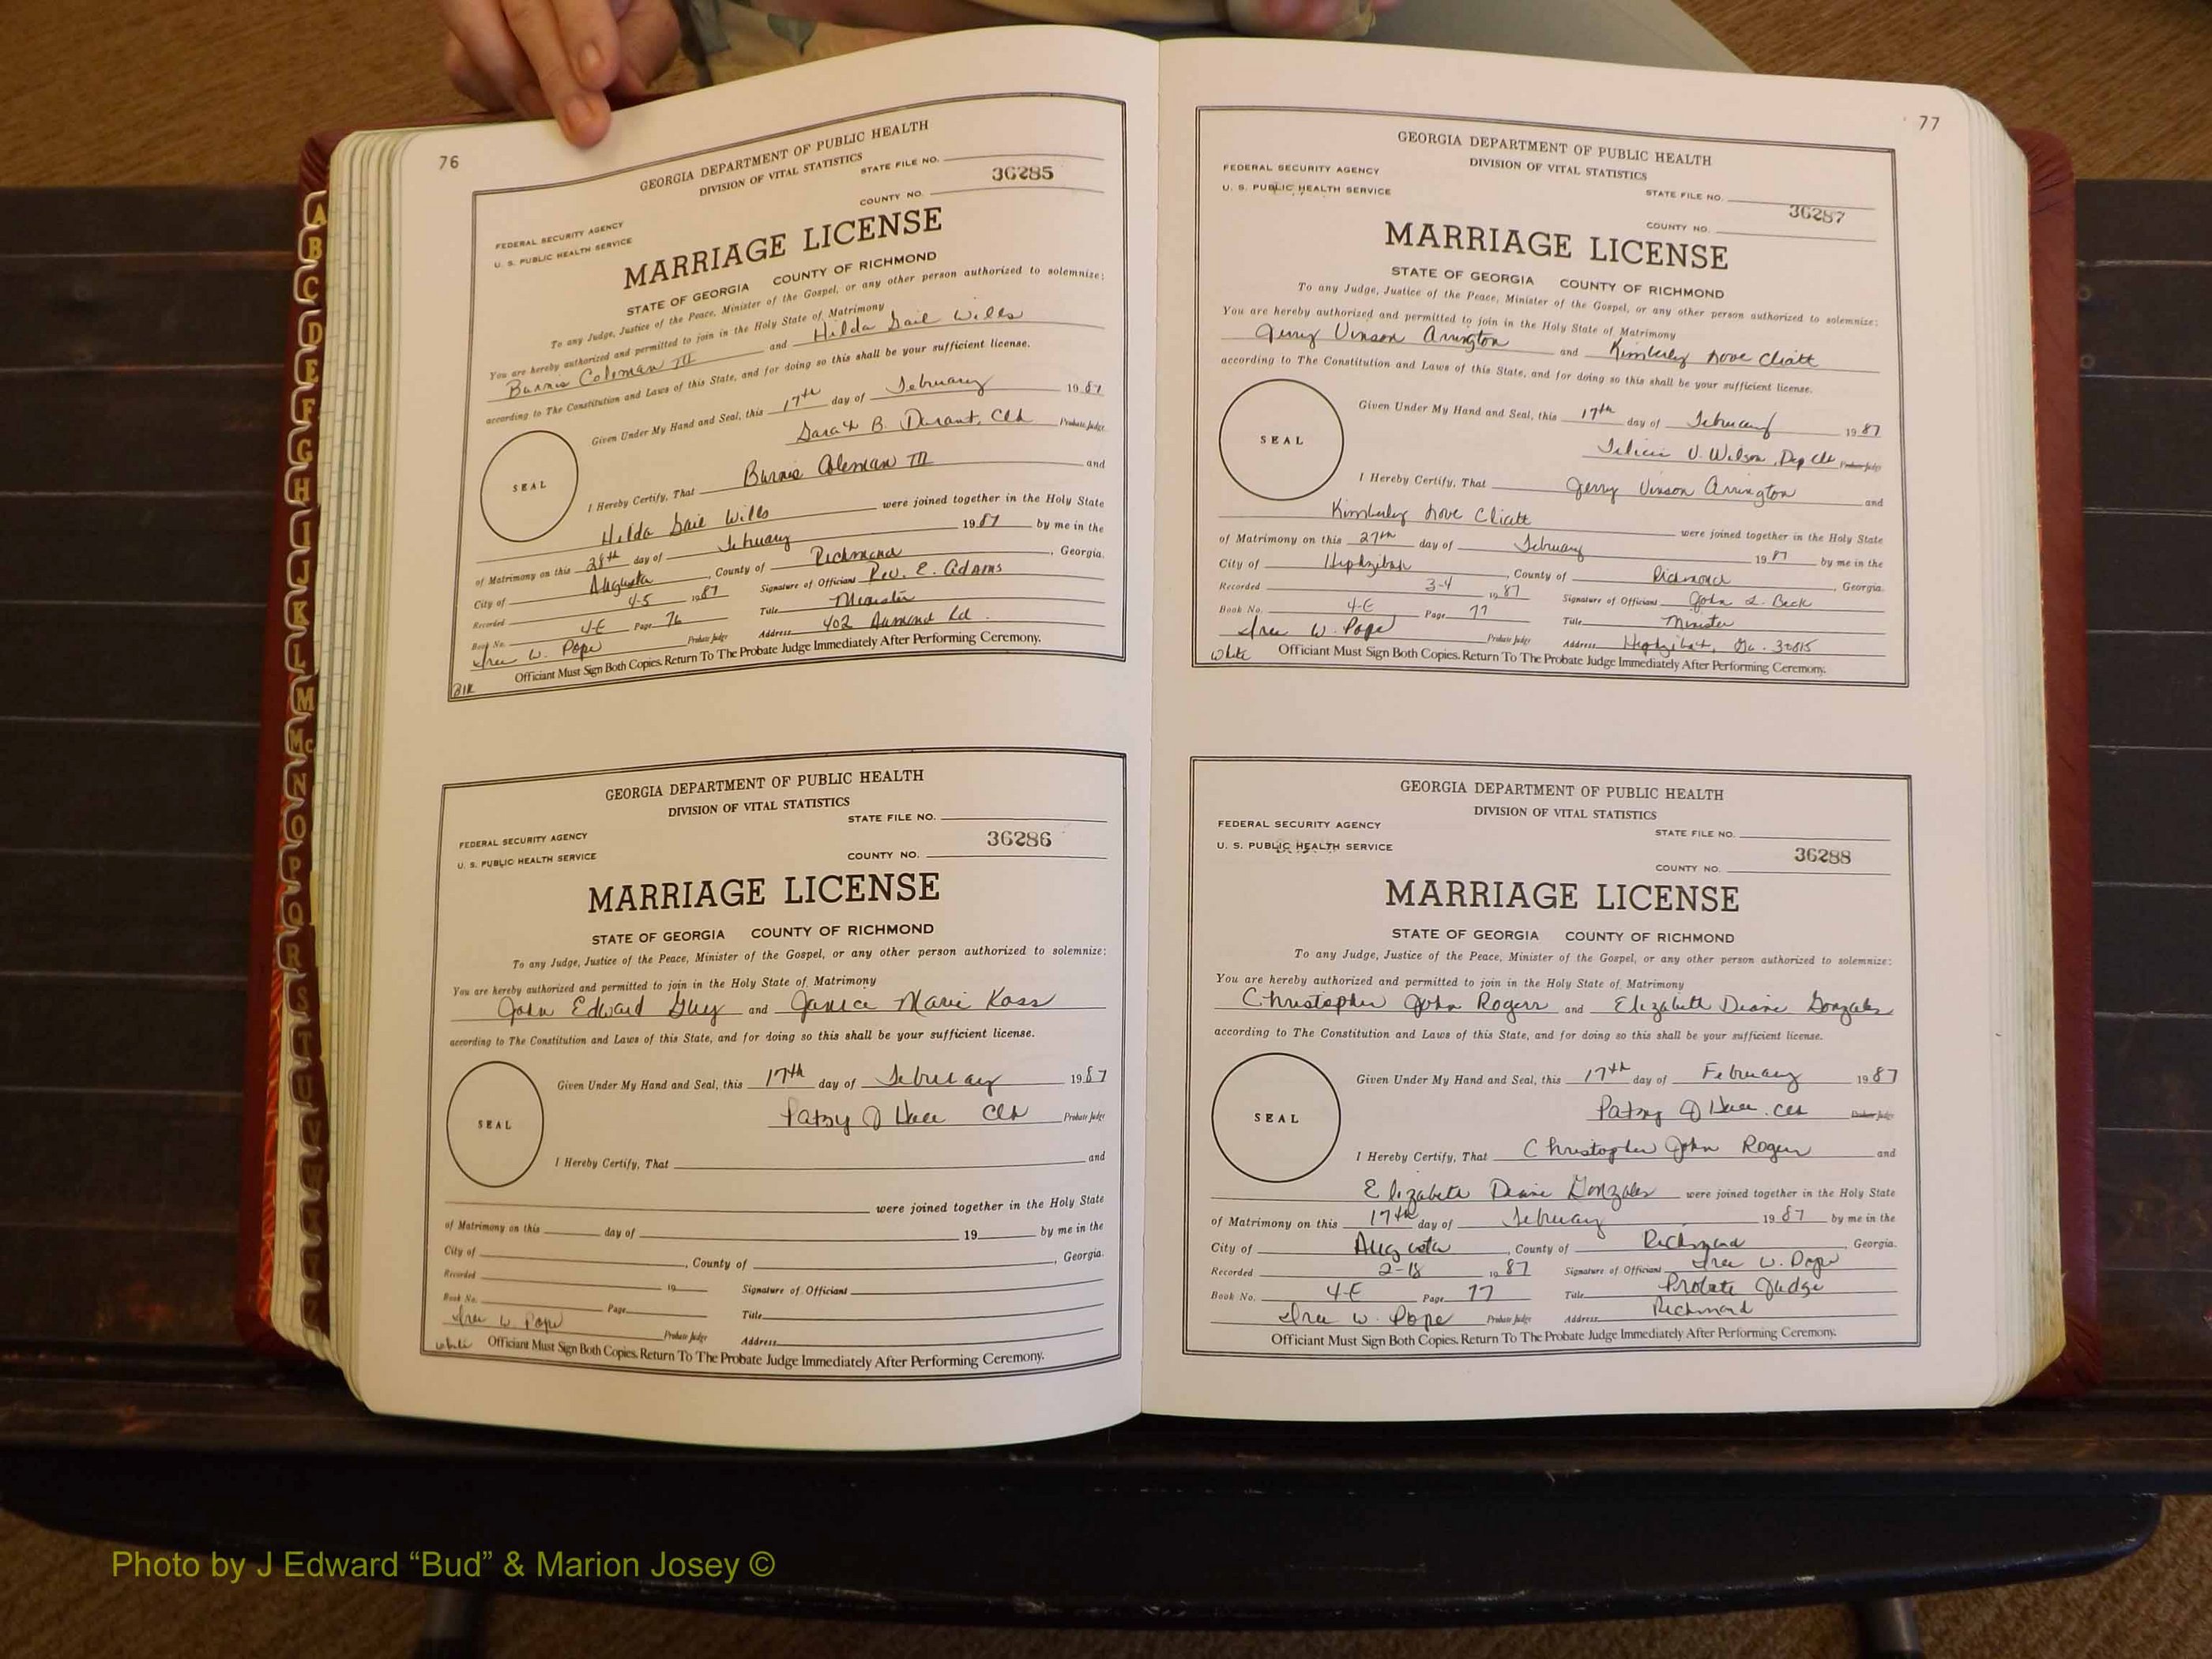 76
GEORGIA DEPARTMENT OF PUBLIC HEALTH
DIVISION OF VITAL STATISTICS
STATE FILE NO.
36285
COUNTY NO.
FEDERAL SECURITY AGENCY
U. S. PUBLIC HEALTH SERVICE
MARRIAGE LICENSE
STATE OF GEORGIA COUNTY OF RICHMOND
To any Judge, Justice of the Peace, Minister of the Gospel, or any other person authorized to solemnize:
You are hereby authorized and permitted to join in the Holy State of Matrimony
Coleman III and Hilda Gail Wills
according to The Constitution and Laws of this State, and for doing so this shall be your sufficient license.
Given Under My Hand and Seal, this 17th day of February 1987
Sarah B. Durant, Clk Probate Judge
SEAL
I Hereby Certify, That Coleman III and
Hilda Gail Wills were joined together in the Holy State
of Matrimony on this 28th day of February 1987 by me in the
City of Augusta, County of Richmond, Georgia.
Recorded 4-5 1987 Signature of Officiant Rev. E. Adams
Book No. 4-E Page 76 Title Minister
W. Pope Probate Judge Address 402 Aumond Rd.
Blk Officiant Must Sign Both Copies. Return To The Probate Judge Immediately After Performing Ceremony.
GEORGIA DEPARTMENT OF PUBLIC HEALTH
DIVISION OF VITAL STATISTICS
STATE FILE NO.
36286
COUNTY NO.
FEDERAL SECURITY AGENCY
U. S. PUBLIC HEALTH SERVICE
MARRIAGE LICENSE
STATE OF GEORGIA COUNTY OF RICHMOND
To any Judge, Justice of the Peace, Minister of the Gospel, or any other person authorized to solemnize:
You are hereby authorized and permitted to join in the Holy State of Matrimony
John Edward Guy and Janice Marie Koss
according to The Constitution and Laws of this State, and for doing so this shall be your sufficient license.
Given Under My Hand and Seal, this 17th day of February 1987
Patsy J Clk Probate Judge
SEAL
I Hereby Certify, That and
were joined together in the Holy State
of Matrimony on this day of 19 by me in the
City of , County of , Georgia.
Recorded 19 Signature of Officiant
Book No. Page Title
W. Pope Probate Judge Address
White Officiant Must Sign Both Copies. Return To The Probate Judge Immediately After Performing Ceremony.
77
GEORGIA DEPARTMENT OF PUBLIC HEALTH
DIVISION OF VITAL STATISTICS
FEDERAL SECURITY AGENCY
U. S. PUBLIC HEALTH SERVICE
STATE FILE NO.
36287
COUNTY NO.
MARRIAGE LICENSE
STATE OF GEORGIA COUNTY OF RICHMOND
To any Judge, Justice of the Peace, Minister of the Gospel, or any other person authorized to solemnize:
You are hereby authorized and permitted to join in the Holy State of Matrimony
Jerry Vinson Arrington and Kimberley Love Cliatt
according to The Constitution and Laws of this State, and for doing so this shall be your sufficient license.
Given Under My Hand and Seal, this 17th day of February 1987
Felicia V. Wilson, Dep Clk Probate Judge
SEAL
I Hereby Certify, That Jerry Vinson Arrington and
Kimberley Love Cliatt were joined together in the Holy State
of Matrimony on this 27th day of February 1987 by me in the
City of Hephzibah, County of Richmond, Georgia.
Recorded 3-4 1987 Signature of Officiant John L. Beck
Book No. 4-E Page 77 Title Minister
W. Pope Probate Judge Address Hephzibah, Ga. 30815
White Officiant Must Sign Both Copies. Return To The Probate Judge Immediately After Performing Ceremony.
GEORGIA DEPARTMENT OF PUBLIC HEALTH
DIVISION OF VITAL STATISTICS
FEDERAL SECURITY AGENCY
U. S. PUBLIC HEALTH SERVICE
STATE FILE NO.
36288
COUNTY NO.
MARRIAGE LICENSE
STATE OF GEORGIA COUNTY OF RICHMOND
To any Judge, Justice of the Peace, Minister of the Gospel, or any other person authorized to solemnize:
You are hereby authorized and permitted to join in the Holy State of Matrimony
Christopher John Rogers and Elizabeth Diane Gonzales
according to The Constitution and Laws of this State, and for doing so this shall be your sufficient license.
Given Under My Hand and Seal, this 17th day of February 1987
Patsy J Clk Probate Judge
SEAL
I Hereby Certify, That Christopher John Rogers and
Elizabeth Diane Gonzales were joined together in the Holy State
of Matrimony on this 17th day of February 1987 by me in the
City of Augusta, County of Richmond, Georgia.
Recorded 2-18 1987 Signature of Officiant W. Pope
Book No. 4-E Page 77 Title Probate Judge
W. Pope Probate Judge Address Richmond
Officiant Must Sign Both Copies. Return To The Probate Judge Immediately After Performing Ceremony.
A
B
C
D
E
F
G
H
I
J
K
L
M
Mc
N
O
P
Q
R
S
T
U
V
Photo by J Edward “Bud” & Marion Josey ©